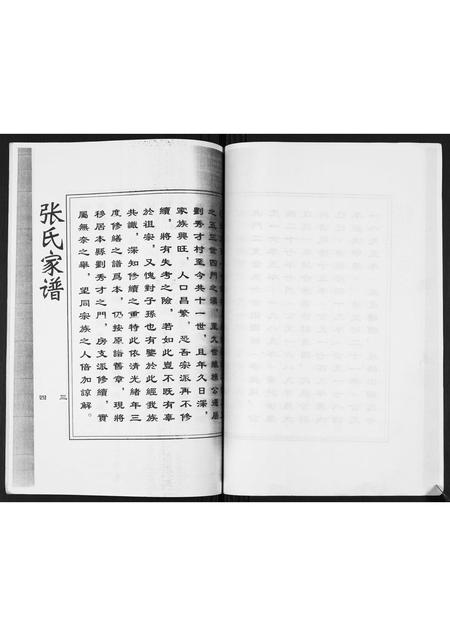 之五三世四門之濬，至九世維公遷居
劉秀才村至今共十一世，且年久日深，
家族興旺，人口昌繁，恐吾宗派再不修
續，將有失考之險，若如此豈不既有辜
於祖宗，又愧對子孫也有鑒於此經我族
共識，深知修續之重特此依清光緒年三
度修緒之譜爲本，仍按原譜舊章，現將
移居本縣劉秀才之門，房支派修續，實
屬無奈之舉，望同宗族之人倍加諒解。
张氏家谱
三
四